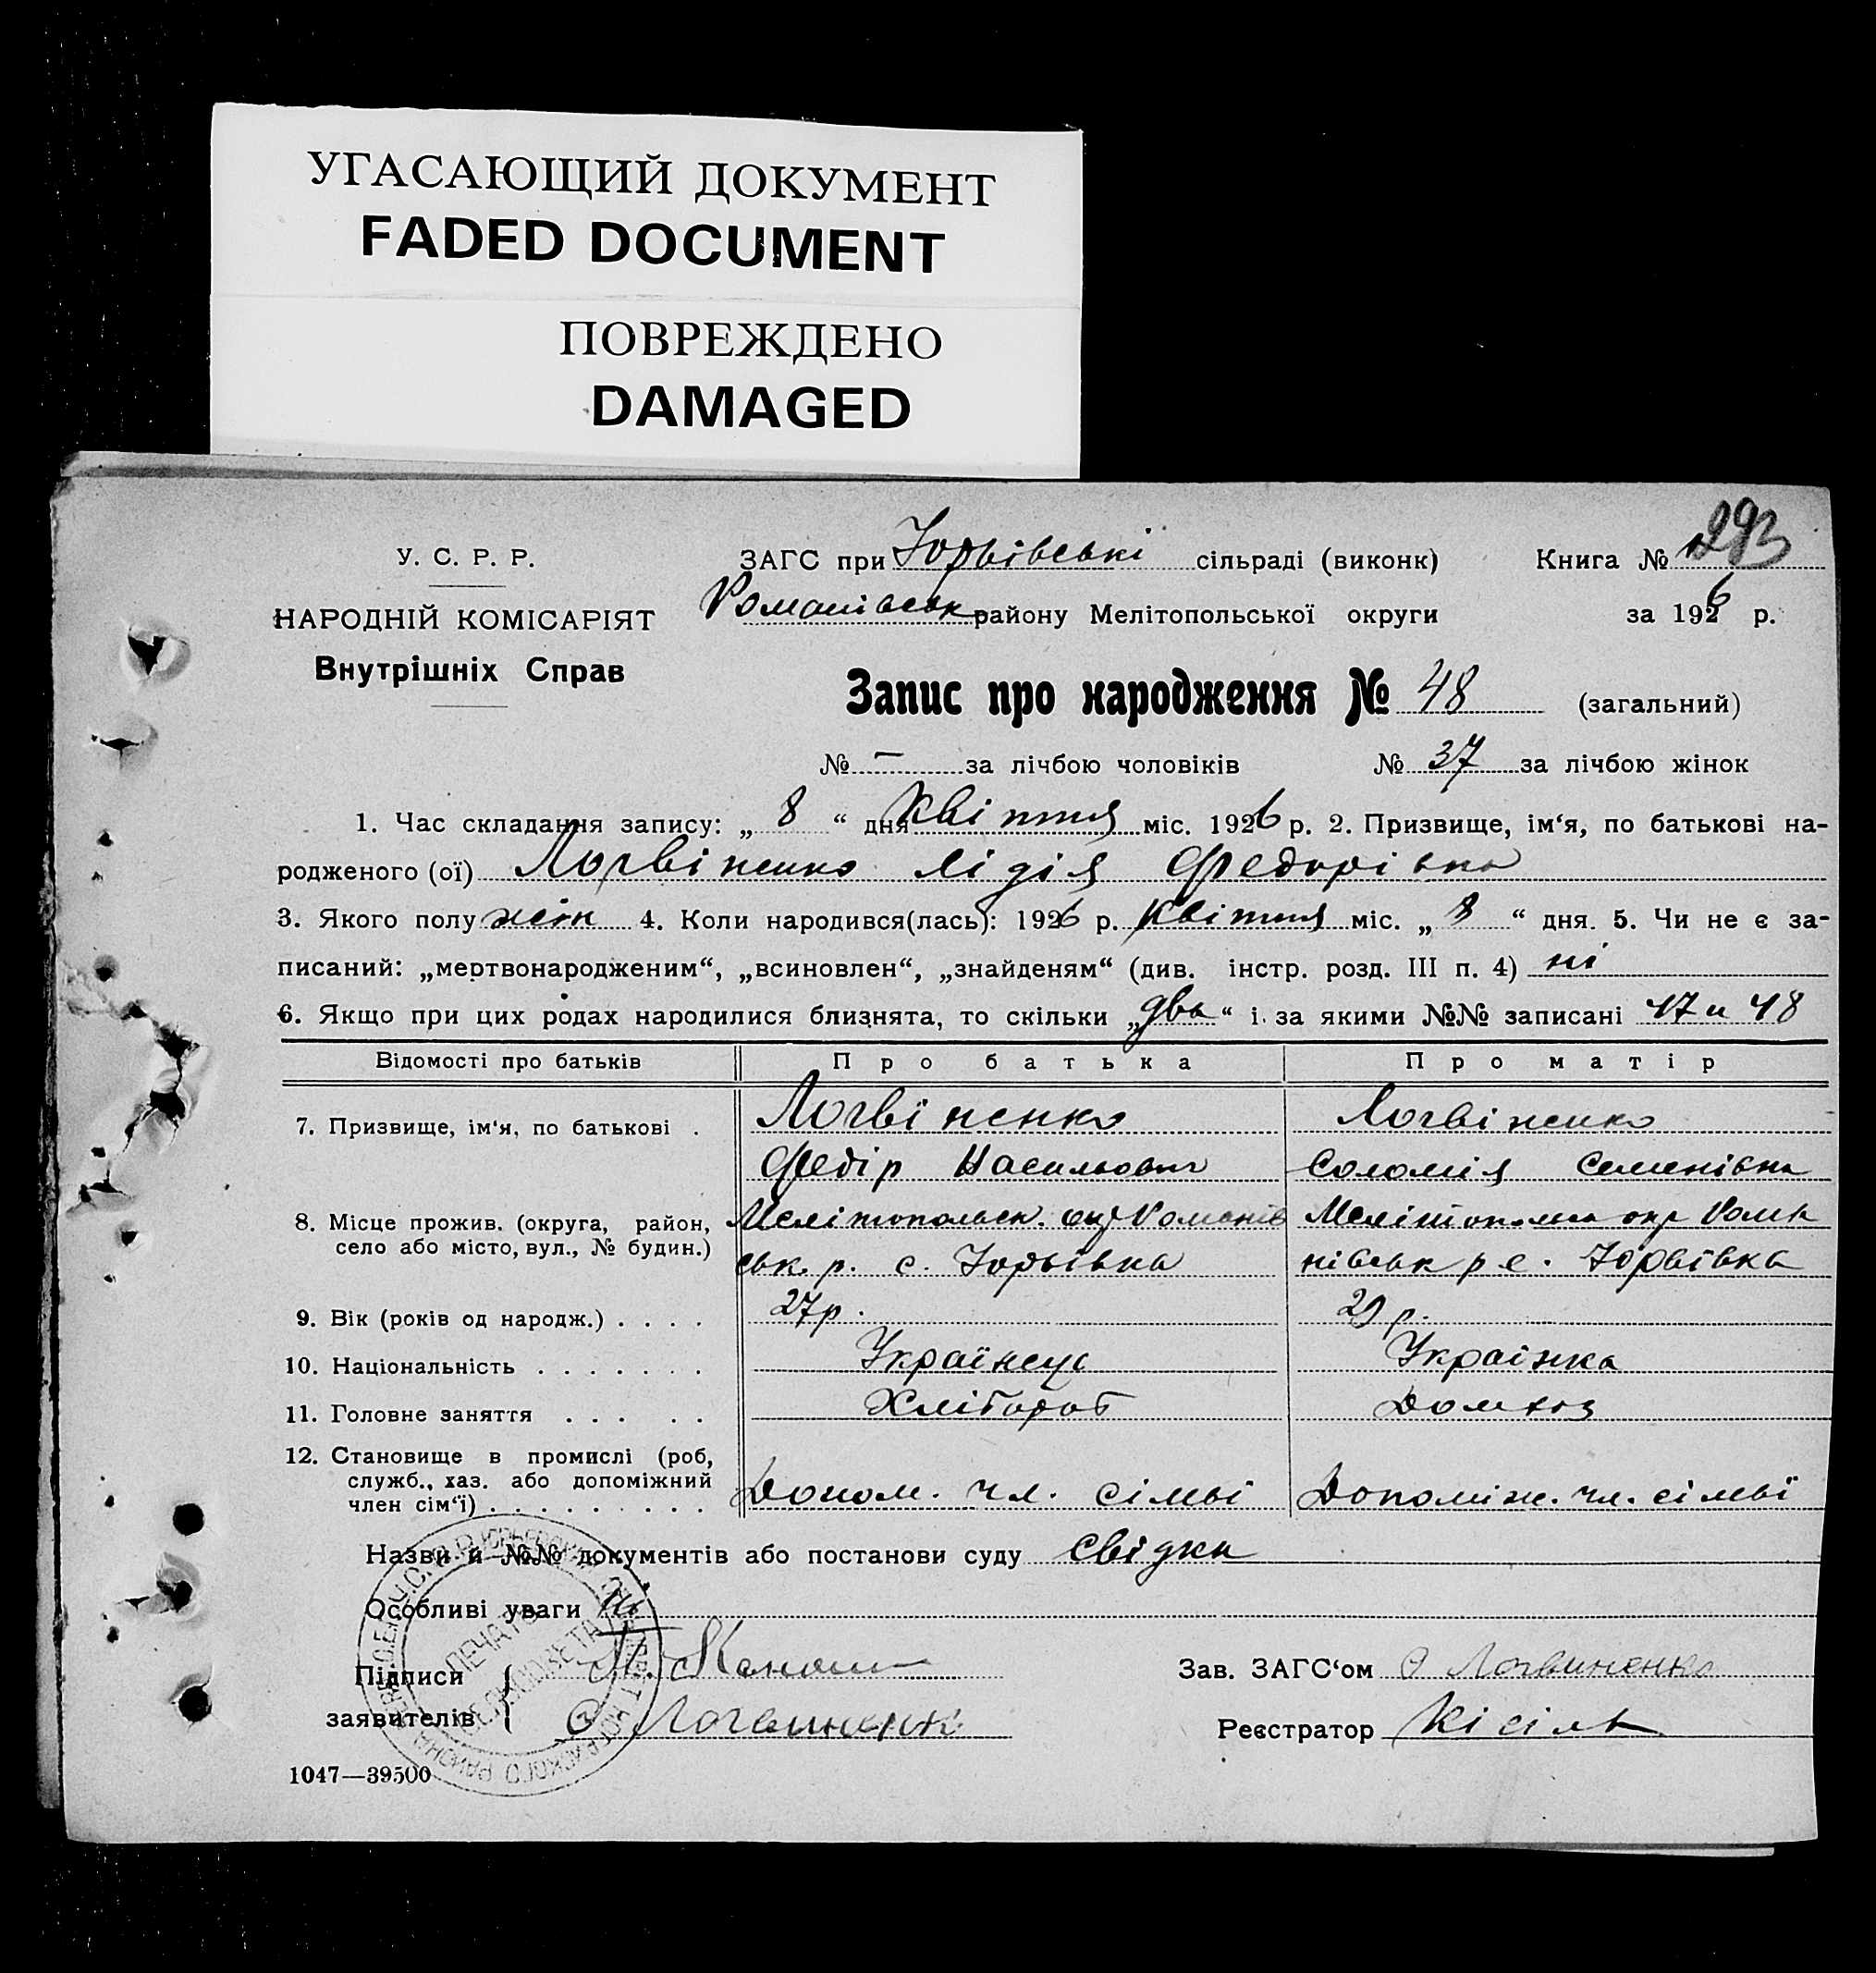 УГАСАЮЩИЙ ДОКУМЕНТ
FADED DOCUMENT
ПОВРЕЖДЕНО
DAMAGED
293
У. С. Р. Р.
ЗАГС при Юрьівські сільраді (виконк)
Книга №
НАРОДНІЙ КОМІСАРІЯТ
Романівськ району Мелітопольської округи
за 1926 р.
Внутрішніх Справ
Запис про народження № 48 (загальний)
№ — за лічбою чоловіків № 37 за лічбою жінок
1. Час складання запису: „ 8 “ дня Квітня міс. 1926 р. 2. Призвище, ім‘я, по батькові на-
родженого (ої) Логвіненко Лідія Федорівна
3. Якого полу жін 4. Коли народився(лась): 1926 р. Квітня міс. „ 8 “ дня. 5. Чи не є за-
писаний: „мертвонародженим“, „всиновлен“, „знайденям“ (див. інстр. розд. III п. 4) ні
6. Якщо при цих родах народилися близнята, то скільки „два“ і за якими №№ записані 47 и 48
Відомості про батьків Про батька Про матір
7. Призвище, ім‘я, по батькові . Логвіненко Логвіненко
Федір Васильович Соломія Семенівна
8. Місце прожив. (округа, район, Мелітопольск. окр Романів
село або місто, вул., № будин.) ськ. р. с. Юрьівка
Мелітопольс окр Рома
нівськ р с. Юрьівка
9. Вік (років од народж.) . . . . 27 р. 29 р.
10. Національність . . . . . . . Українець Українка
11. Головне заняття . . . . . Хлібороб Домхоз
12. Становище в промислі (роб,
служб., хаз. або допоміжний
член сім‘ї) . . . . . . . . . Допом. чл. сімьі Допоміж. чл. сімьї
Назви й №№ документів або постанови суду Свідки
Особливі уваги ні
Підписи
заявителів О Логвиненк
Зав. ЗАГС‘ом О Логвиненко
Реєстратор Кісіль
ПЕЧАТЬ
СЕЛЬСОВЕТА
1047—39500